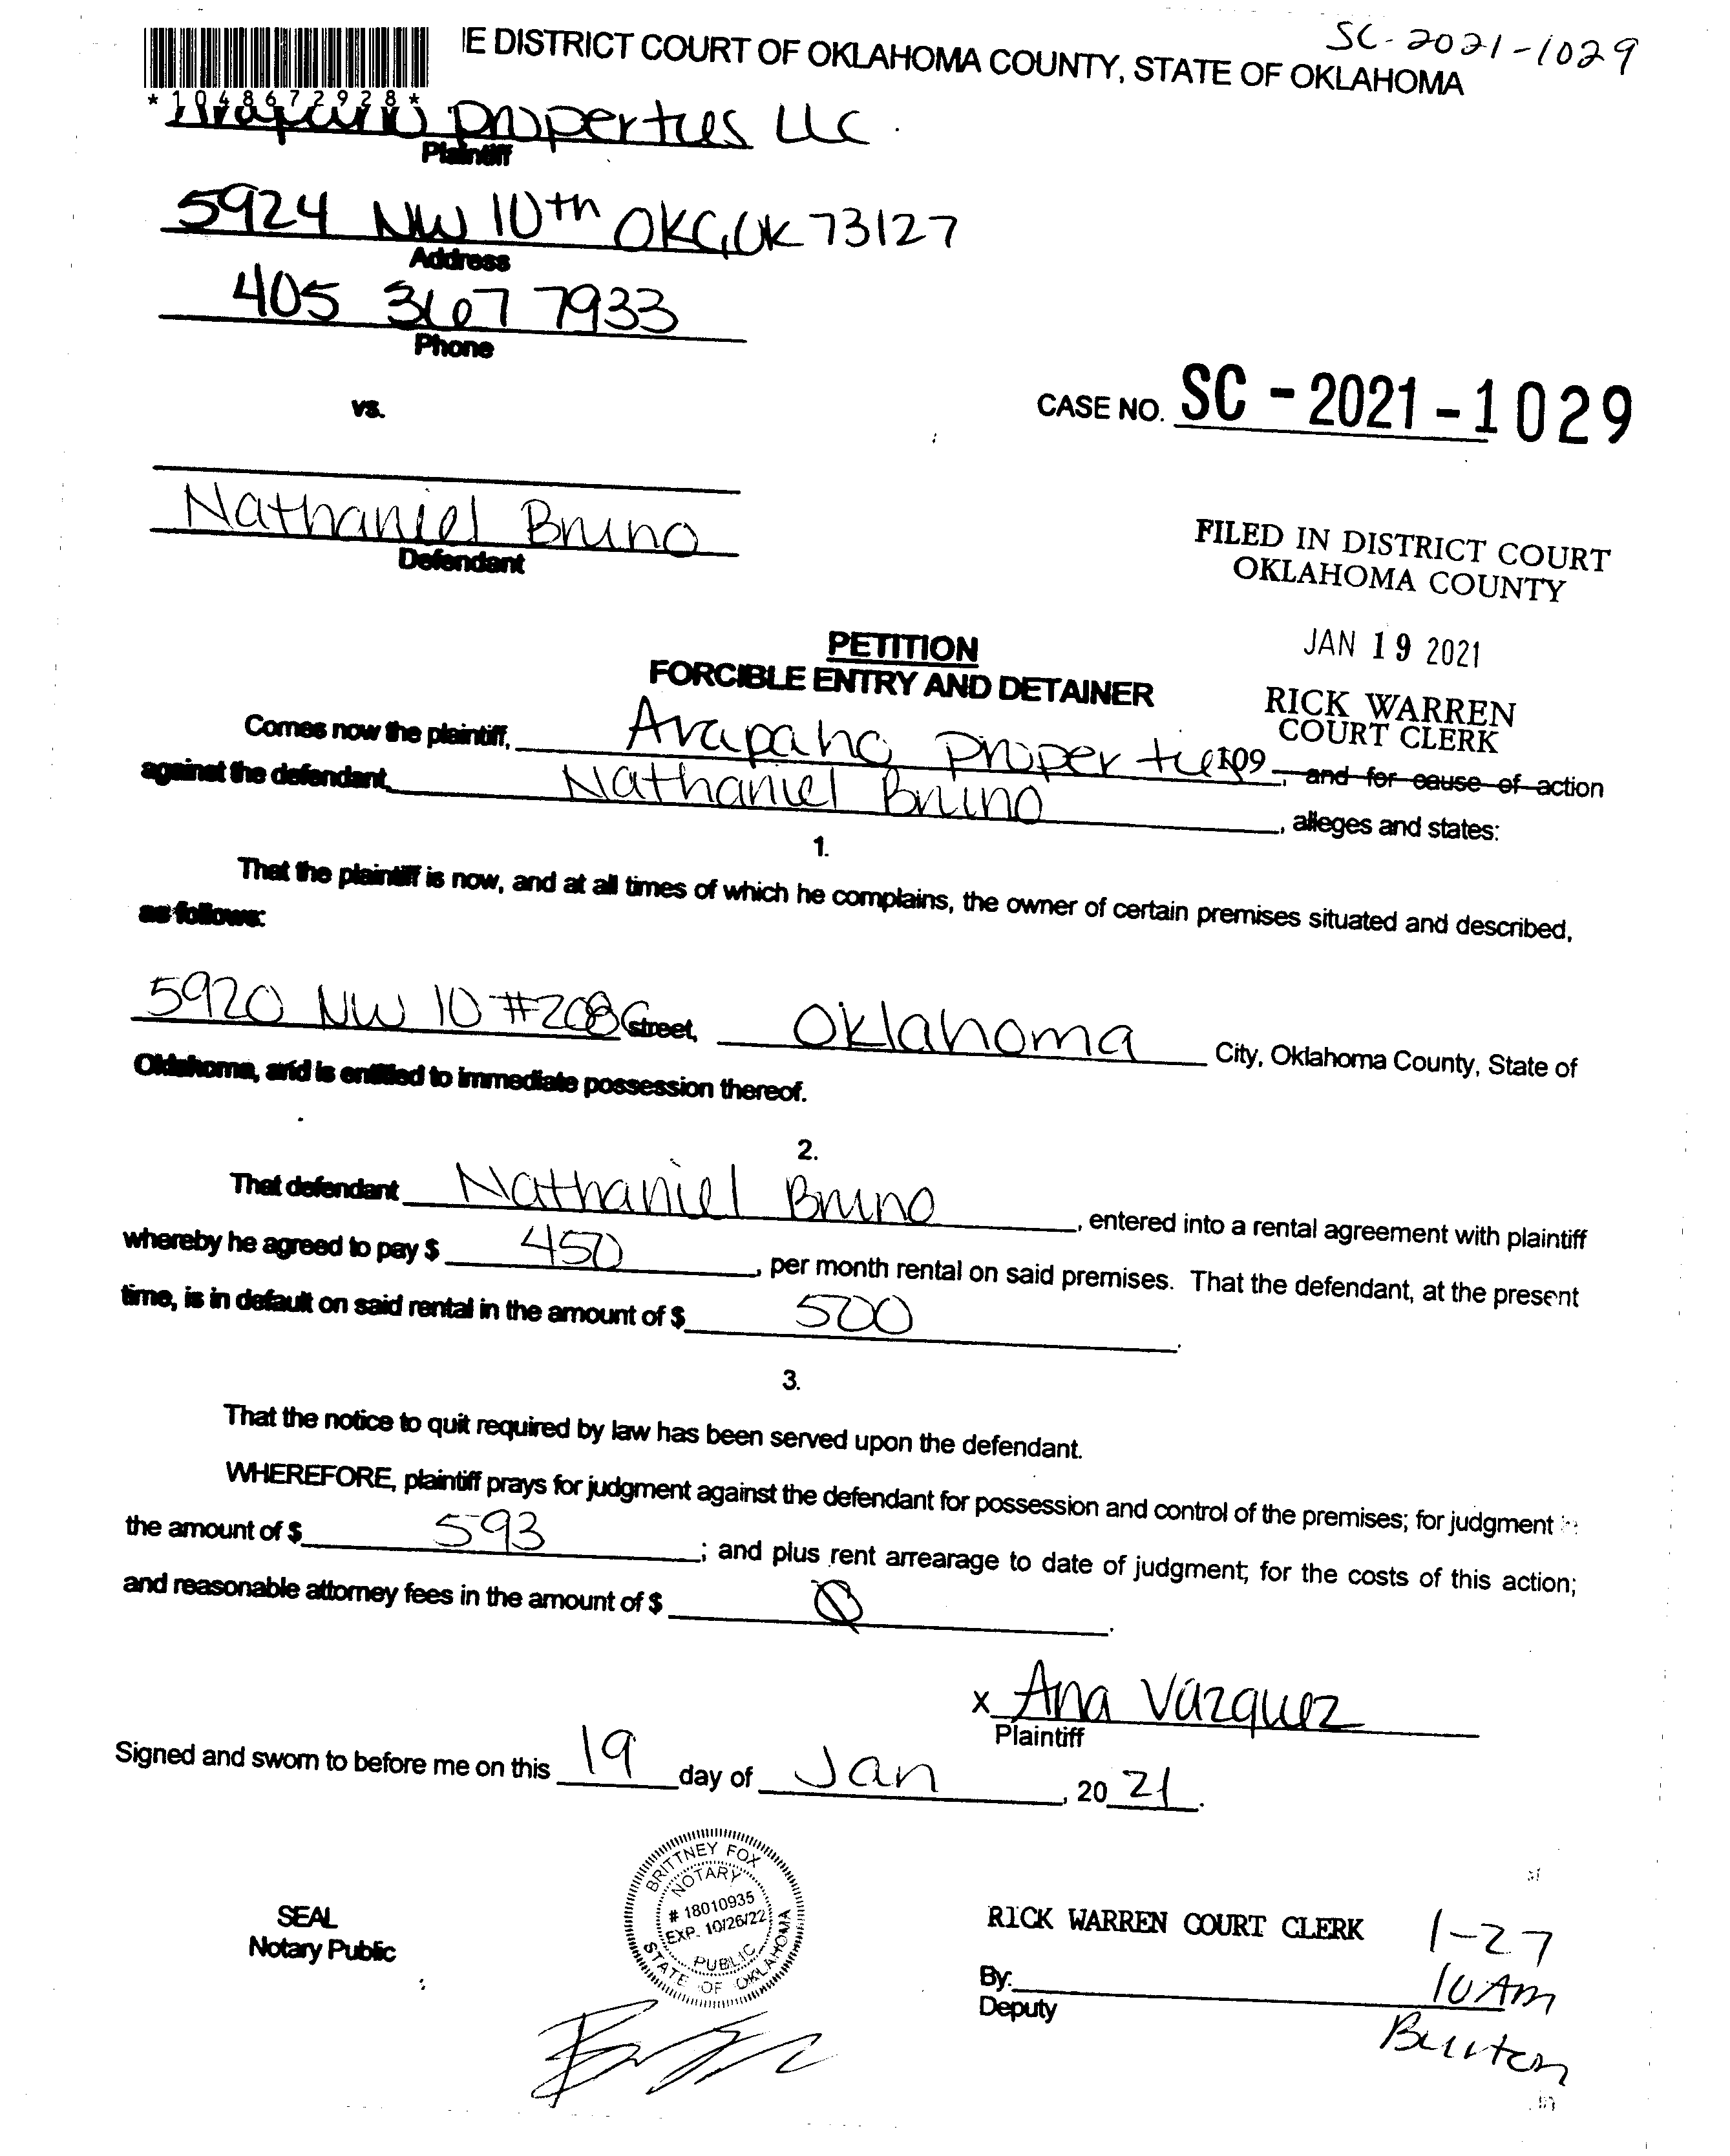 SC-2021-1029
E DISTRICT COURT OF OKLAHOMA COUNTY, STATE OF OKLAHOMA
*1048672928*
Arapaho Properties LLC
Plaintiff
5924 NW 10th OKC, OK 73127
Address
405 367 7933
Phone
vs.
CASE NO. SC-2021-1029
Nathaniel Bruno
Defendant
FILED IN DISTRICT COURT
OKLAHOMA COUNTY
JAN 19 2021
RICK WARREN
COURT CLERK
109
PETITION
FORCIBLE ENTRY AND DETAINER
Comes now the plaintiff, Arapaho Properties, and for cause of action
against the defendant, Nathaniel Bruno, alleges and states:
1.
That the plaintiff is now, and at all times of which he complains, the owner of certain premises situated and described,
as follows:
5920 NW 10 #208 street, Oklahoma City, Oklahoma County, State of
Oklahoma, and is entitled to immediate possession thereof.
2.
That defendant Nathaniel Bruno, entered into a rental agreement with plaintiff
whereby he agreed to pay $ 450, per month rental on said premises. That the defendant, at the present
time, is in default on said rental in the amount of $ 500.
3.
That the notice to quit required by law has been served upon the defendant.
WHEREFORE, plaintiff prays for judgment against the defendant for possession and control of the premises; for judgment in
the amount of $ 593; and plus rent arrearage to date of judgment; for the costs of this action;
and reasonable attorney fees in the amount of $ Ø.
x Ana Vazquez
Plaintiff
Signed and sworn to before me on this 19 day of Jan, 2021.
BRITTNEY FOX
NOTARY
# 18010935
EXP. 10/26/22
PUBLIC
STATE OF OKLAHOMA
SEAL
Notary Public
RICK WARREN COURT CLERK
By:
Deputy
1-27
10 AM